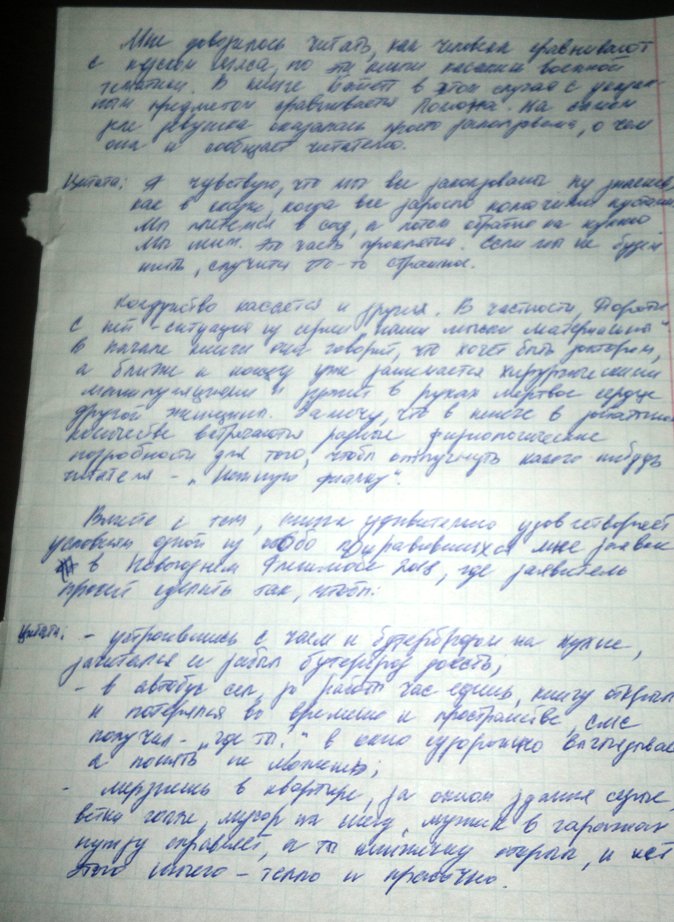 Мне доводилось читать, как человека сравнивают
с куском мяса, но эти книги касались военной
тематики. В книге батет в этом случае с
ным предметом сравнивается Ложна. На самом
же девушка оказалась просто заколдована, о чем
она и сообщает читателю.
Цитата: Я чувствую, что мы все заколдованы. Ну знаете,
как в сказке, когда все заросло колючими кустами.
Мы пытемся в сад, а потом обратно на кухню.
Мы мим. Это часть проклятия. Если мы не будем
пить, случится что-то страшное.
Колдовство касается и других. В частности, Дороти
с ней ситуация из серии "наши мыски материальны"
В начале книги она говорит, что хочет быть доктором,
а ближе к концу уже занимается хирургическими
манипуляциями и держит в руках мертвое сердце
другой женщины. Замечу, что в книге в достаточном
количестве встречаются разные физиологические
подробности для того, чтобы отпугнуть какого нибудь
читателя - "нежную фиалку".
Вместе с тем, книга удивительно удовлетворяет
условиям одной из особо понравившихся мне заявок
в Новогоднем Флэшмобе 2018, где заявитель
просит сделать так, чтобы:
Цитата: - устроившись с чаем и бутербродом на кухне,
зачитался и забыл бутерброд доесть;
- в автобус сел, до работы час едешь, книгу открыл
и потерялся во времени и пространстве, смс
получил - "где ты?" в окно судорожно выглядывае
а понять не можешь;
- мерзнешь в квартире, за окном здания серые,
ветки голые, мусор на снегу, мужик в гаражах
нужду справляет, а ты книжечку открыл, и нет
этого ничего - тепло и привычно.